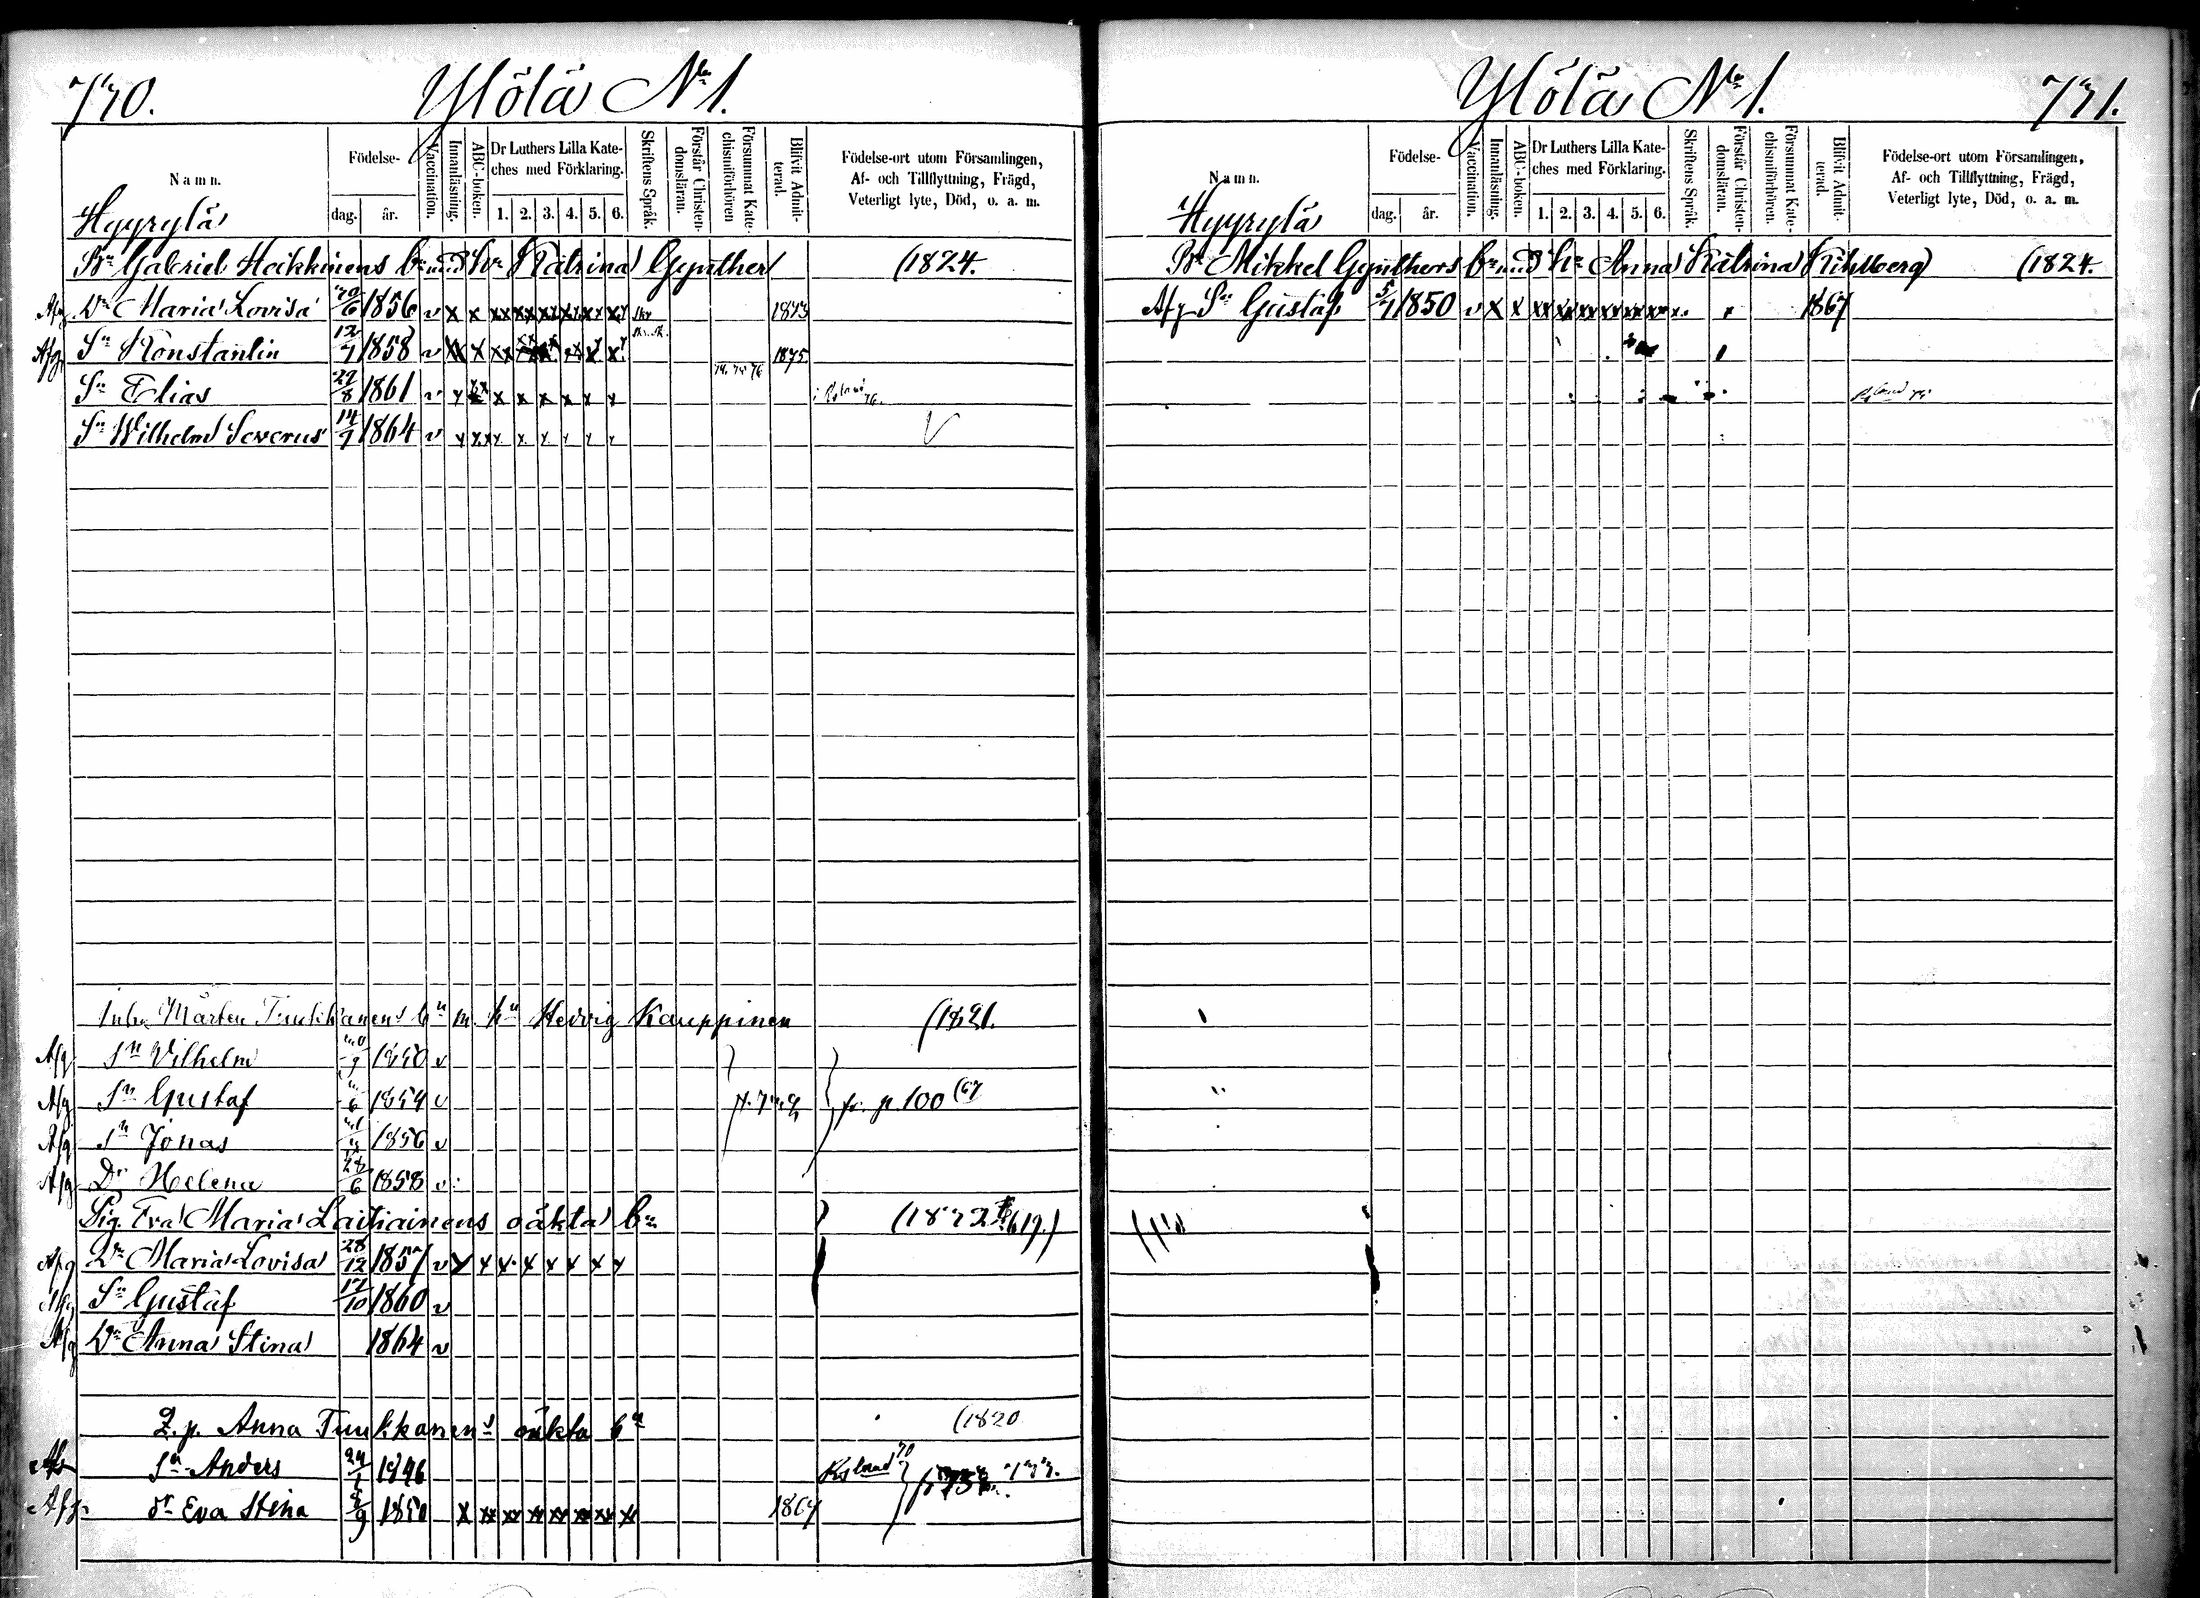 770. Ylölä No 1.
Namn. Födelse- dag. år. Vaccination. Innanläsning. ABC-boken. Dr Luthers Lilla Kate-ches med Förklaring. 1. 2. 3. 4. 5. 6. Skriftens Språk. Förstår Christen-domsläran. Försummat Kate-chismiförhören Blifvit Admit-terad. Födelse-ort utom Församlingen, Af- och Tillflyttning, Frägd, Veterligt lyte, Död, o. a. m.
Hyyrylä
Bn Gabriel Heikkinens bn med hu Katrina Gynther (1824.
Afg Dr Maria Lovisa 1856 v x x xx xx xx xx xx xx 1873
Afg Sn Konstantin 12/7 1858 v 1875
Sn Elias 27/8 1861 v
Sn Wilhelm Severus 14/7 1864 v
Mårten Tuukkanens bn m. hu Hedvig Kauppinen (1821.
Afg Sn Vilhelm 1850 v
Afg Sn Gustaf 1854 v fr. p. 100 (67
Afg Sn Jonas 1856 v
Afg Dr Helena 28/6 1858 v
Eva Maria Laitiainens oäkta bn (1872 619.)
Afg Dr Maria Lovisa 28/12 1857 v x x x x x x x x
Afg Sn Gustaf 17/10 1860 v
Afg Dr Anna Stina 1864 v
Q. p. Anna Tuukkanens oäkta bn (1820
Sn Anders 1846 Rysland 70
Afg. dr Eva Stina 1850 x xx xx xx xx xx xx xx 1867
Ylölä No 1. 771.
Namn. Födelse- dag. år. Vaccination. Innanläsning. ABC-boken. Dr Luthers Lilla Kate-ches med Förklaring. 1. 2. 3. 4. 5. 6. Skriftens Språk. Förstår Christen-domsläran. Försummat Kate-chismiförhören. Blifvit Admit-terad. Födelse-ort utom Församlingen, Af- och Tillflyttning, Frägd, Veterligt lyte, Död, o. a. m.
Hyyrylä
Bn Mikkel Gynthers bn med hu Anna Katrina Kihlberg (1824.
Afg Sn Gustaf 5/7 1850 v x x xx xx xx xx xx xx 1867